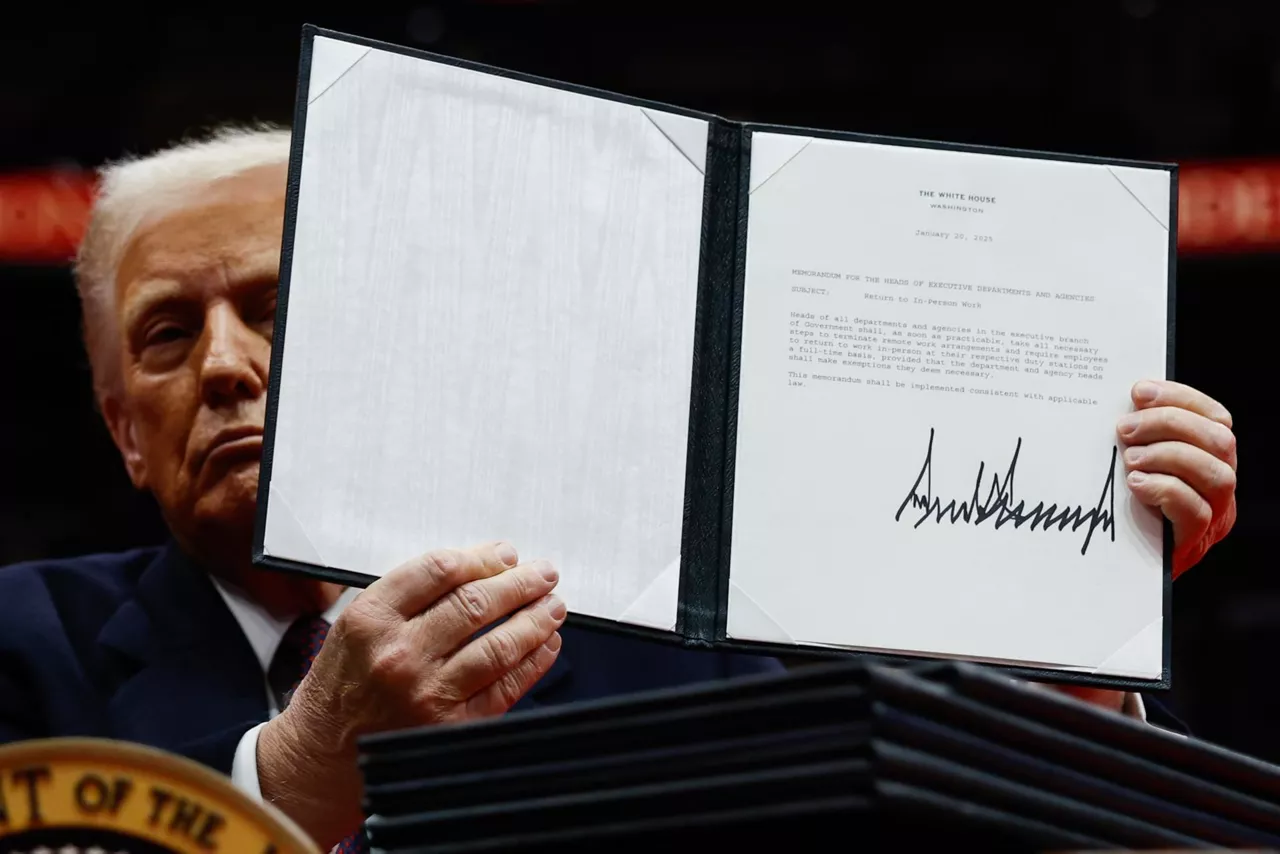 THE WHITE HOUSE
WASHINGTON
January 20, 2025
MEMORANDUM FOR THE HEADS OF EXECUTIVE DEPARTMENTS AND AGENCIES
SUBJECT: Return to In-Person Work
Heads of all departments and agencies in the executive branch
of Government shall, as soon as practicable, take all necessary
steps to terminate remote work arrangements and require employees
to return to work in-person at their respective duty stations on
a full-time basis, provided that the department and agency heads
shall make exemptions they deem necessary.
This memorandum shall be implemented consistent with applicable
law.
OF THE